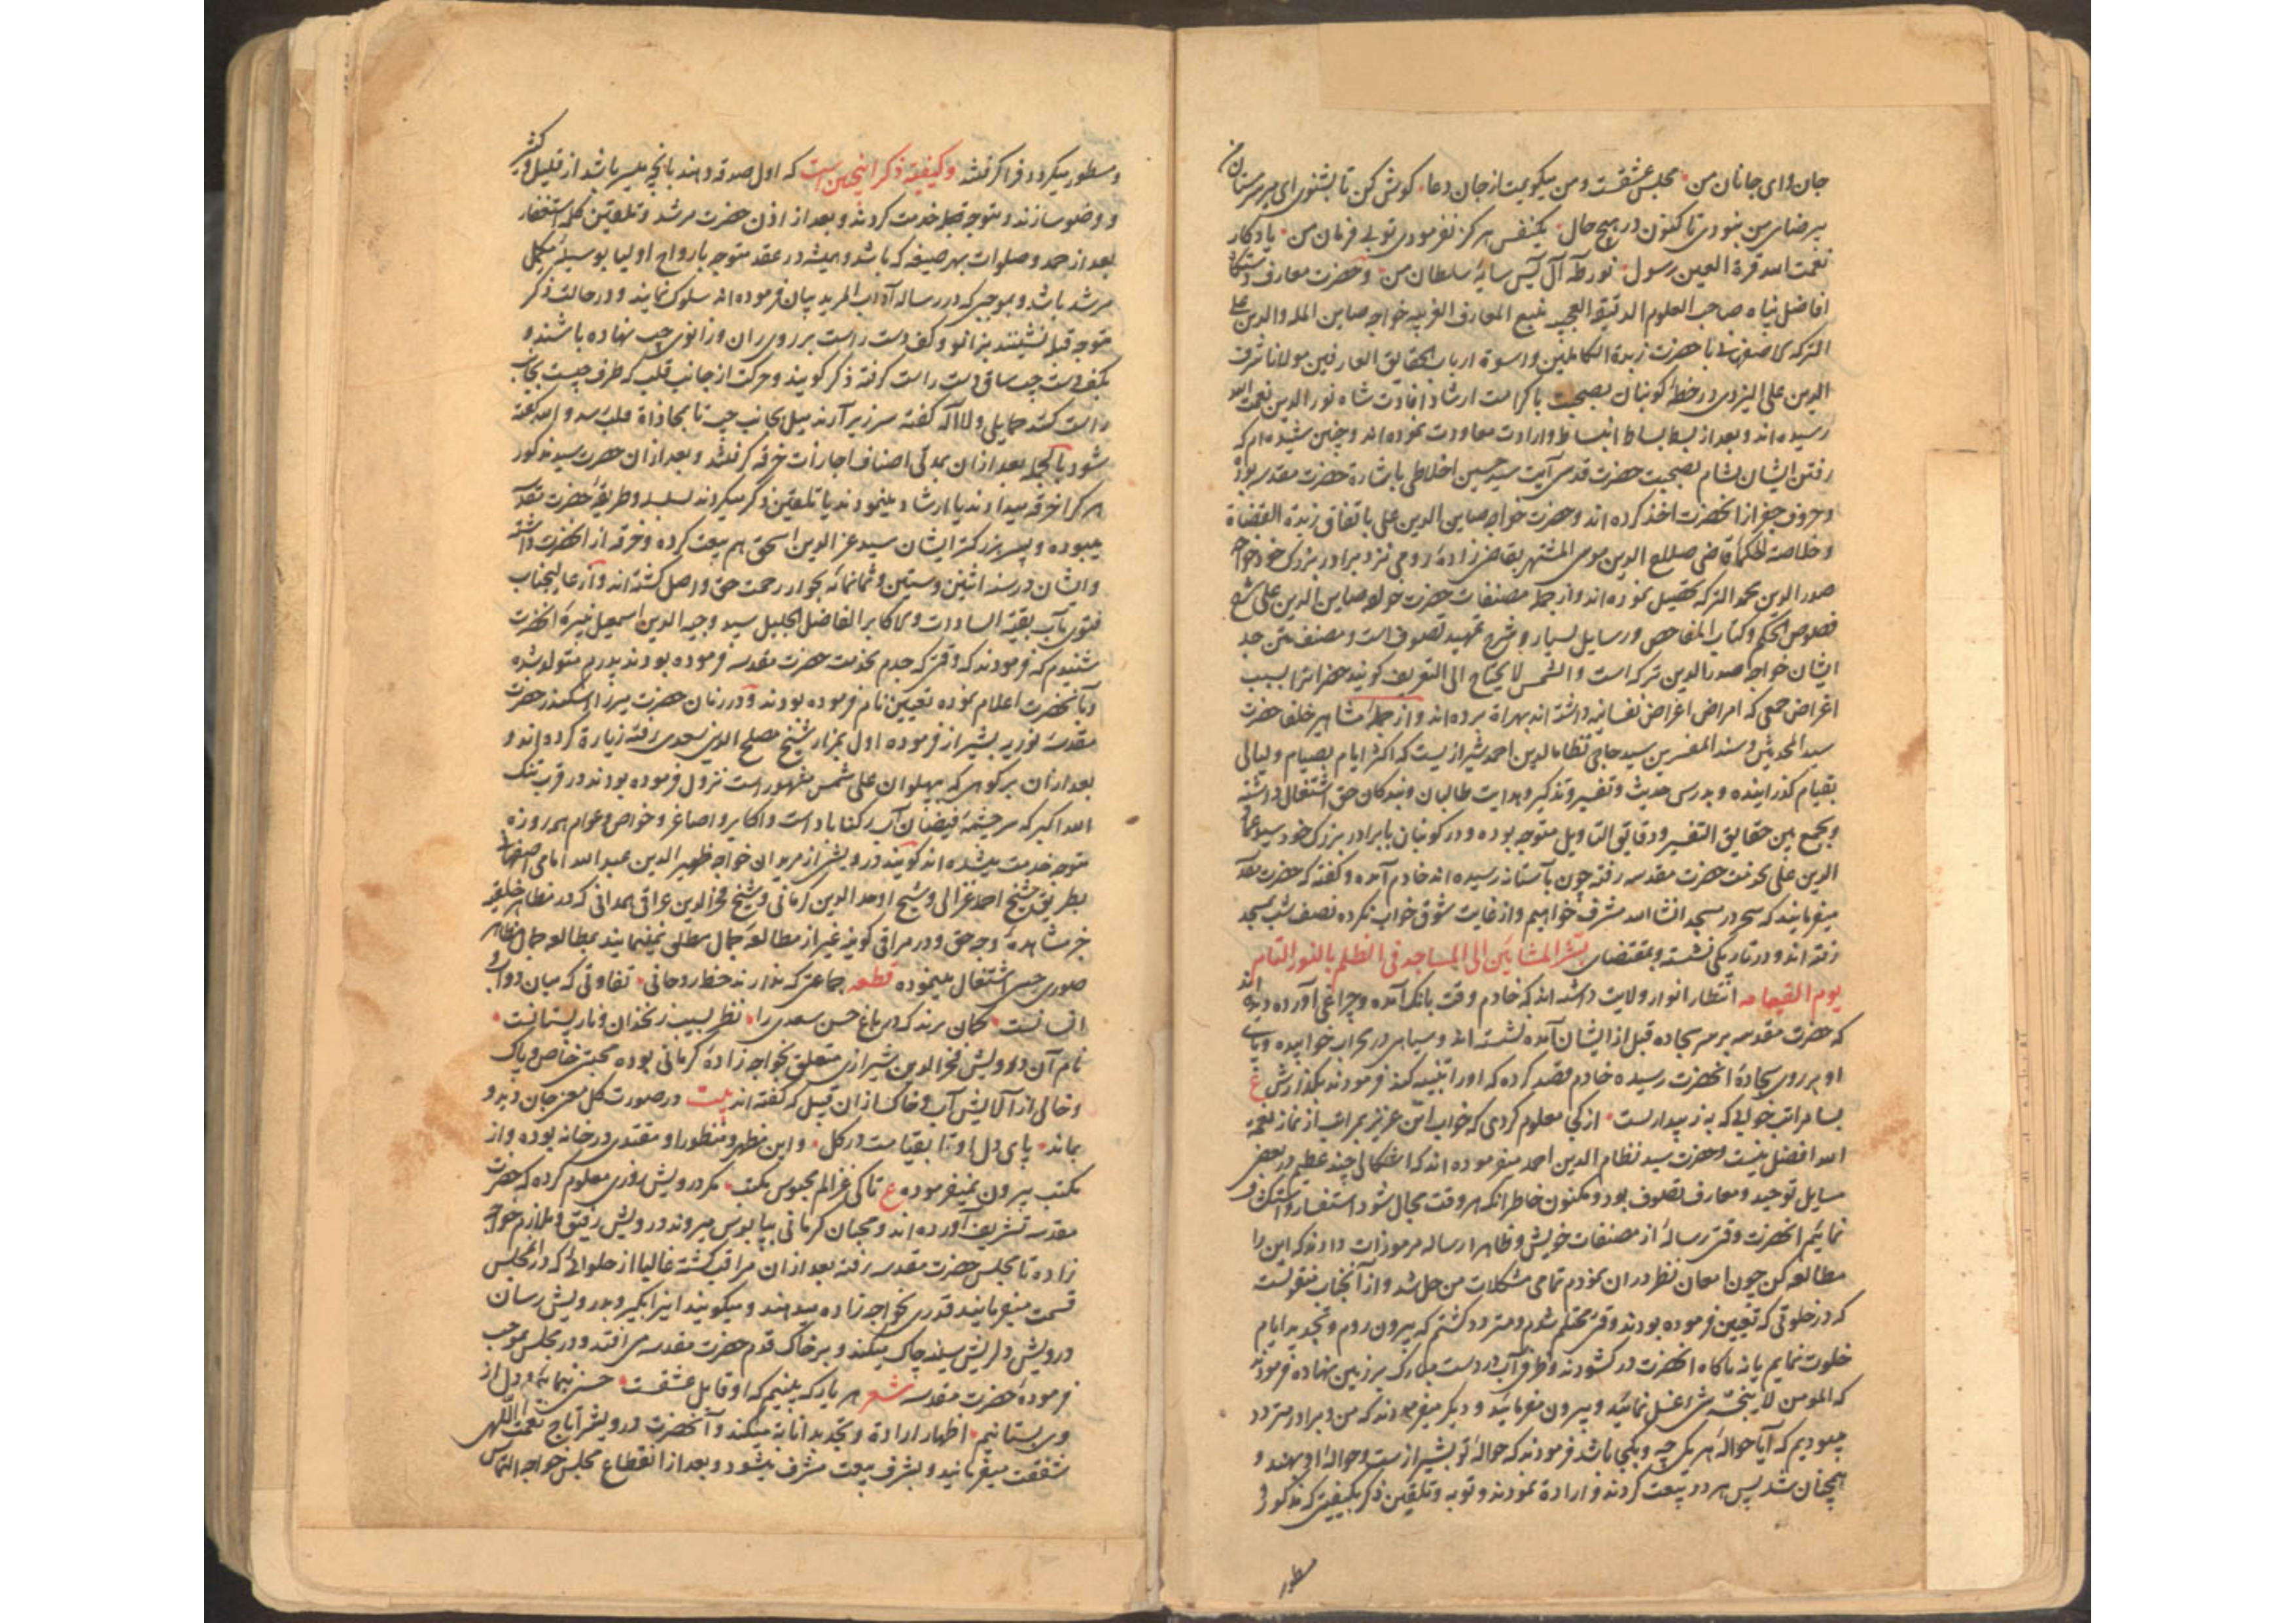 جان و ای جانان من مجلس عشقست و من میکویمت از جان دعا کوش کن تا بشنوی ای میر سرمستان من
بی رضای من نبودی تا کنون در هیچ حال یکنفس هرکز نفرمودی تو بی فرمان من یادکار
نعمت الله قرة العین رسول نور طه آل یس سایه سلطان من و حضرت معارف دستکاه
افاضل پناه صاحب العلوم الدقیقة العجیبه منبع المعارف الغریبه خواجه صاین المله والدین علی
الترکه الاصفهانی با حضرت زبدة الکاملین و اسوة ارباب الحقایق العارفین مولانا شرف
الدین علی الیزدی در خطه کوبنان بصحبت با کرامت ارشاد افادت شاه نور الدین نعمت الله
رسیده اند و بعد از بسط بساط انبساط و ارادت معاودت نموده اند و چنین شنیده ام که
رفتن ایشان بشام بصحبت حضرت قدسی آیت سید حسین اخلاطی باشارة حضرت مقدسه بوده
و حروف جفر از آنحضرت اخذ کرده اند و حضرت خواجه صاین الدین علی باتفاق زبدة القضاة
و خلاصة الحکما قاضی صلاح الدین موسی المشتهر بقاضی زاده رومی نزد برادر بزرک خود خواجه
صدر الدین محمد الترکه تحصیل نموده اند و از جمله مصنفات حضرت خواجه صاین الدین علی شرح
فصوص الحکم و کتاب المفاحص و رسایل بسیار و شرح تمهید تصوف است و مصنف متن جد
ایشان خواجه صدر الدین ترکه است و الشمس لا یحتاج الی التعریف کویند حضرات را بسبب
اغراض جمعی که امراض اغراض نفسانیه داشته اند بهراة برده اند و از جمله مشاهیر خلفا حضرت
سید المحدثین و سند المفسرین سید حاجی نظام الدین احمد شیرازیست که اکثر ایام بصیام و لیالی
بقیام کذرانیده و بدرس حدیث و تفسیر و تذکیر و هدایت طالبان و بندکان حق اشتغال داشته
و بجمع بین حقایق التفسیر و دقایق التاویل متوجه بوده و در کوبنان با برادر بزرک خود سید عماد
الدین علی بخدمت حضرت مقدسه رفته چون بآستانه رسیده اند خادم آمده و کفته که حضرت مقدسه
میفرمایند که سحر در مسجد انشاالله مشرف خواهیم و از غایت شوق خواب نکرده نصف شب بمسجد
رفته اند و در تاریکی نشسته و بمقتضای بشر المشائین الی المساجد فی الظلم بالنور التام
یوم القیمامه انتظار انوار ولایت داشته اند که خادم وقت بانک آمده و چراغی آورده دیده اند
که حضرت مقدسه بر سر سجاده قبل از ایشان آمده نشسته اند و سیاهی در محراب خوابیده و پای
او بر روی سجاده آنحضرت رسیده خادم قصد کرده که او را تنبیه کند فرمودند بکذارش ع
بسا مراتب خوابی که به ز بیداریست از کی معلوم کردی که خواب این عزیز بمراتب از نماز نعمة
الله افضل نیست و حضرت سید نظام الدین احمد میفرموده اند که اشکالی چند عظیم در بعضی
مسایل توحید و معارف تصوف بود و مکنون خاطر آنکه هر وقت مجال شود استفسار و استکشاف
نمائیم آنحضرت وقتی رساله از مصنفات خویش و ظاهرا رساله مرموزات دادند که این را
مطالعه کن چون امعان نظر در ان نمودم تمامی مشکلات من حل شد و از آنجناب منقولست
که در خلوتی که تعیین فرموده بودند وقتی محتلم شدم و متردد کشتم که بیرون روم و تجدید ایام
خلوت نمایم یا نه ناکاه آنحضرت در کشودند و ظرفی آب در دست مبارک بر زمین نهاده فرمودند
که المومن لا ینجسه شی غسل نمائید و بیرون میفرمائید و دیکر میفرمودند که من و برادر متردد
میبودیم که آیا حواله هر یکی چه و بکجا باشد فرمودند که حواله تو بشیراز است و حواله او بهند و
همچنان شد پس هر دو بیعت کردند و ارادة نمودند و توبه و تلقین ذکر بکیفیتی که مذکور و
مسطور
و مسطور میکردد فرا کرفتند و کیفیة ذکر اینچنین است که اول صدقه دهند بآنچه میسر باشد از قلیل و کثیر
و وضو سازند و متوجه قبله خدمت کردند و بعد از اذن حضرت مرشد و تلقین کلمه استغفار
بعد از حمد و صلوات بهر صیغه که باشد و همیشه در عقد متوجه بارواح اولیا بوسیله مکمل
مرشد باشد و بموجبی که در رساله آداب المرید بیان فرموده اند سلوک نمایند و در حالت ذکر
متوجه قبله نشینند بزانو و کف دست راست بر روی ران و زانوی چپ نهاده باشند و
بکف دست چپ ساق دست راست کرفته ذکر کویند و حرکت از جانب قلب که طرف چپست بجانب
راست کنند حمایلی و لا اله کفته سر زیر آرند میل بجانب چپ تا بمحاذاة قلب رسد و الا الله کفته
شود بالجمله بعد از ان بمدتی اصناف اجازات خرقه کرفتند و بعد از ان حضرت سید مذکور
هر کرا خرقه میدادند یا ارشاد مینمودند یا تلقین ذکر میکردند بسلسله و طریقه حضرت مقدسه
میبوده و پسر بزرکتر ایشان سید عز الدین اسحق هم بیعت کرده و خرقه از آنحضرت داشته
و ایشان در سنه اثنین و ستین و ثمانمائه بجوار رحمت حق واصل کشته اند و از عالیجناب
فتوی مآب بقیة السادات و الاکابر الفاضل الجلیل سید وجیه الدین اسمعیل نبیره آنحضرت
شنیدم که فرمودند که وقتی که جدم بخدمت حضرت مقدسه فرموده بودند پدرم متولد شده
و بآنحضرت اعلام نموده تعیین نام فرموده بودند و در زمان حضرت میرزا اسکندر حضرت
مقدسه نوریه بشیراز فرموده اول بمزار شیخ مصلح الدین سعدی رفته زیارة کرده اند و
بعد از ان بر کوهی که بپهلوان علی شمس مشهور است نزول فرموده بودند در قرب تنک
الله اکبر که سر چشمه فیضان آب رکناباد است و اکابر و اصاغر و خواص و عوام همه روزه
متوجه خدمت میشده اند کویند درویشی از مریدان خواجه ظهیر الدین عبد الله امامی اصفهانی
بطریق شیخ احمد غزالی و شیخ اوحد الدین کرمانی و شیخ فخر الدین عراقی همدانی که در مظاهر خلقیه
جز مشاهده وجه حق و در مراقی کونیه غیر از مطالعه جمال مطلق نمینمایند بمطالعه جمال مظاهر
صوری حسی اشتغال مینموده قطعه جماعتی که ندارند حظ روحانی تفاوتی که میان دواب و
انسانست کمان برند که در باغ حسن سعدی را نظر بسیب زنخدان و نار پستانست
نام آن درویش فخر الدین شیرازی متعلق بخواجه زاده کرمانی بوده محبتی خاص و پاک
و خالی از آلایش آب و خاک از ان قبیل که کفته اند بیت در صورت کل معنی جان دید و
بماند پای دل او تا بقیامت در کل و این مظهر و منظور او مقتدی در خانه بوده و از
مکتب بیرون نمیفرموده ع تا کی غزالم محبوس مکتب مکر درویش روزی معلوم کرده که حضرت
مقدسه تشریف آورده اند و محبان کرمانی بپابوس میروند درویش رفیق و ملازم خواجه
زاده تا مجلس حضرت مقدسه رفته بعد از ان مراقب کشته غالبا از حلوائی که در مجلس
قسمت میفرمایند قدری بخواجه زاده میدهند و میکویند اینرا بکیر و بدرویش رسان
درویش دلریش سینه چاک میکند و بر خاک قدم حضرت مقدسه می افتد و در مجلس بموجب
فرموده حضرت مقدسه شعر هر یار که بینیم که او قابل عشقست حسنی بنمایم و دل از
وی بستانیم اظهار ارادة و تجدید انابه میکند و آنحضرت درویش را تاج نعمت اللهی
شفقت میفرمایند و بشرف بیعت مشرف میشود و بعد از انقطاع مجلس خواجه التماس